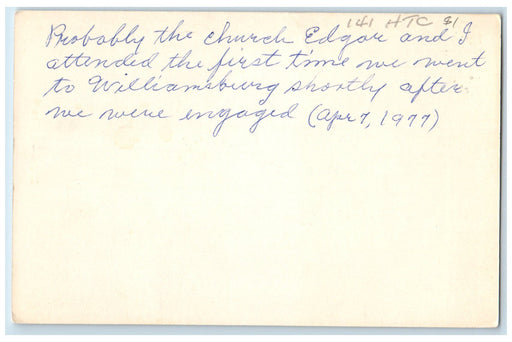 141 HTC $1
Probably the church Edgar and I
attended the first time we went
to Williamsburg shortly after
we were engaged (Apr 7, 1977)